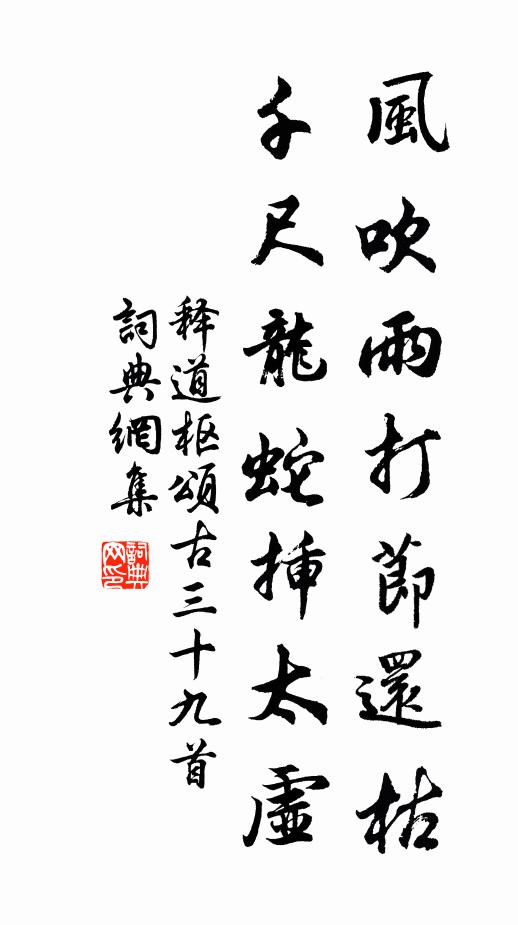 風吹雨打節還枯
千尺龍蛇揷太虛
释道枢頌古三十九首
詞典網集
詞典网印